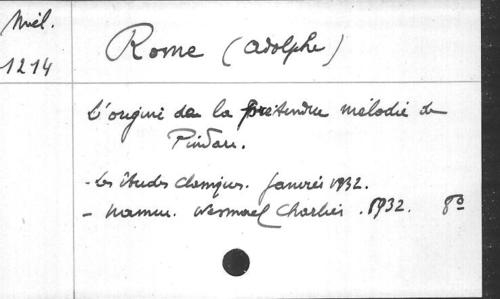 Mél.
1214
Rome (Adolphe)
L'origine de la prétendue mélodie de
Pindare.
- Les études classiques. Janvier 1932.
- Namur. Wesmael Charlier. 1932. 8º